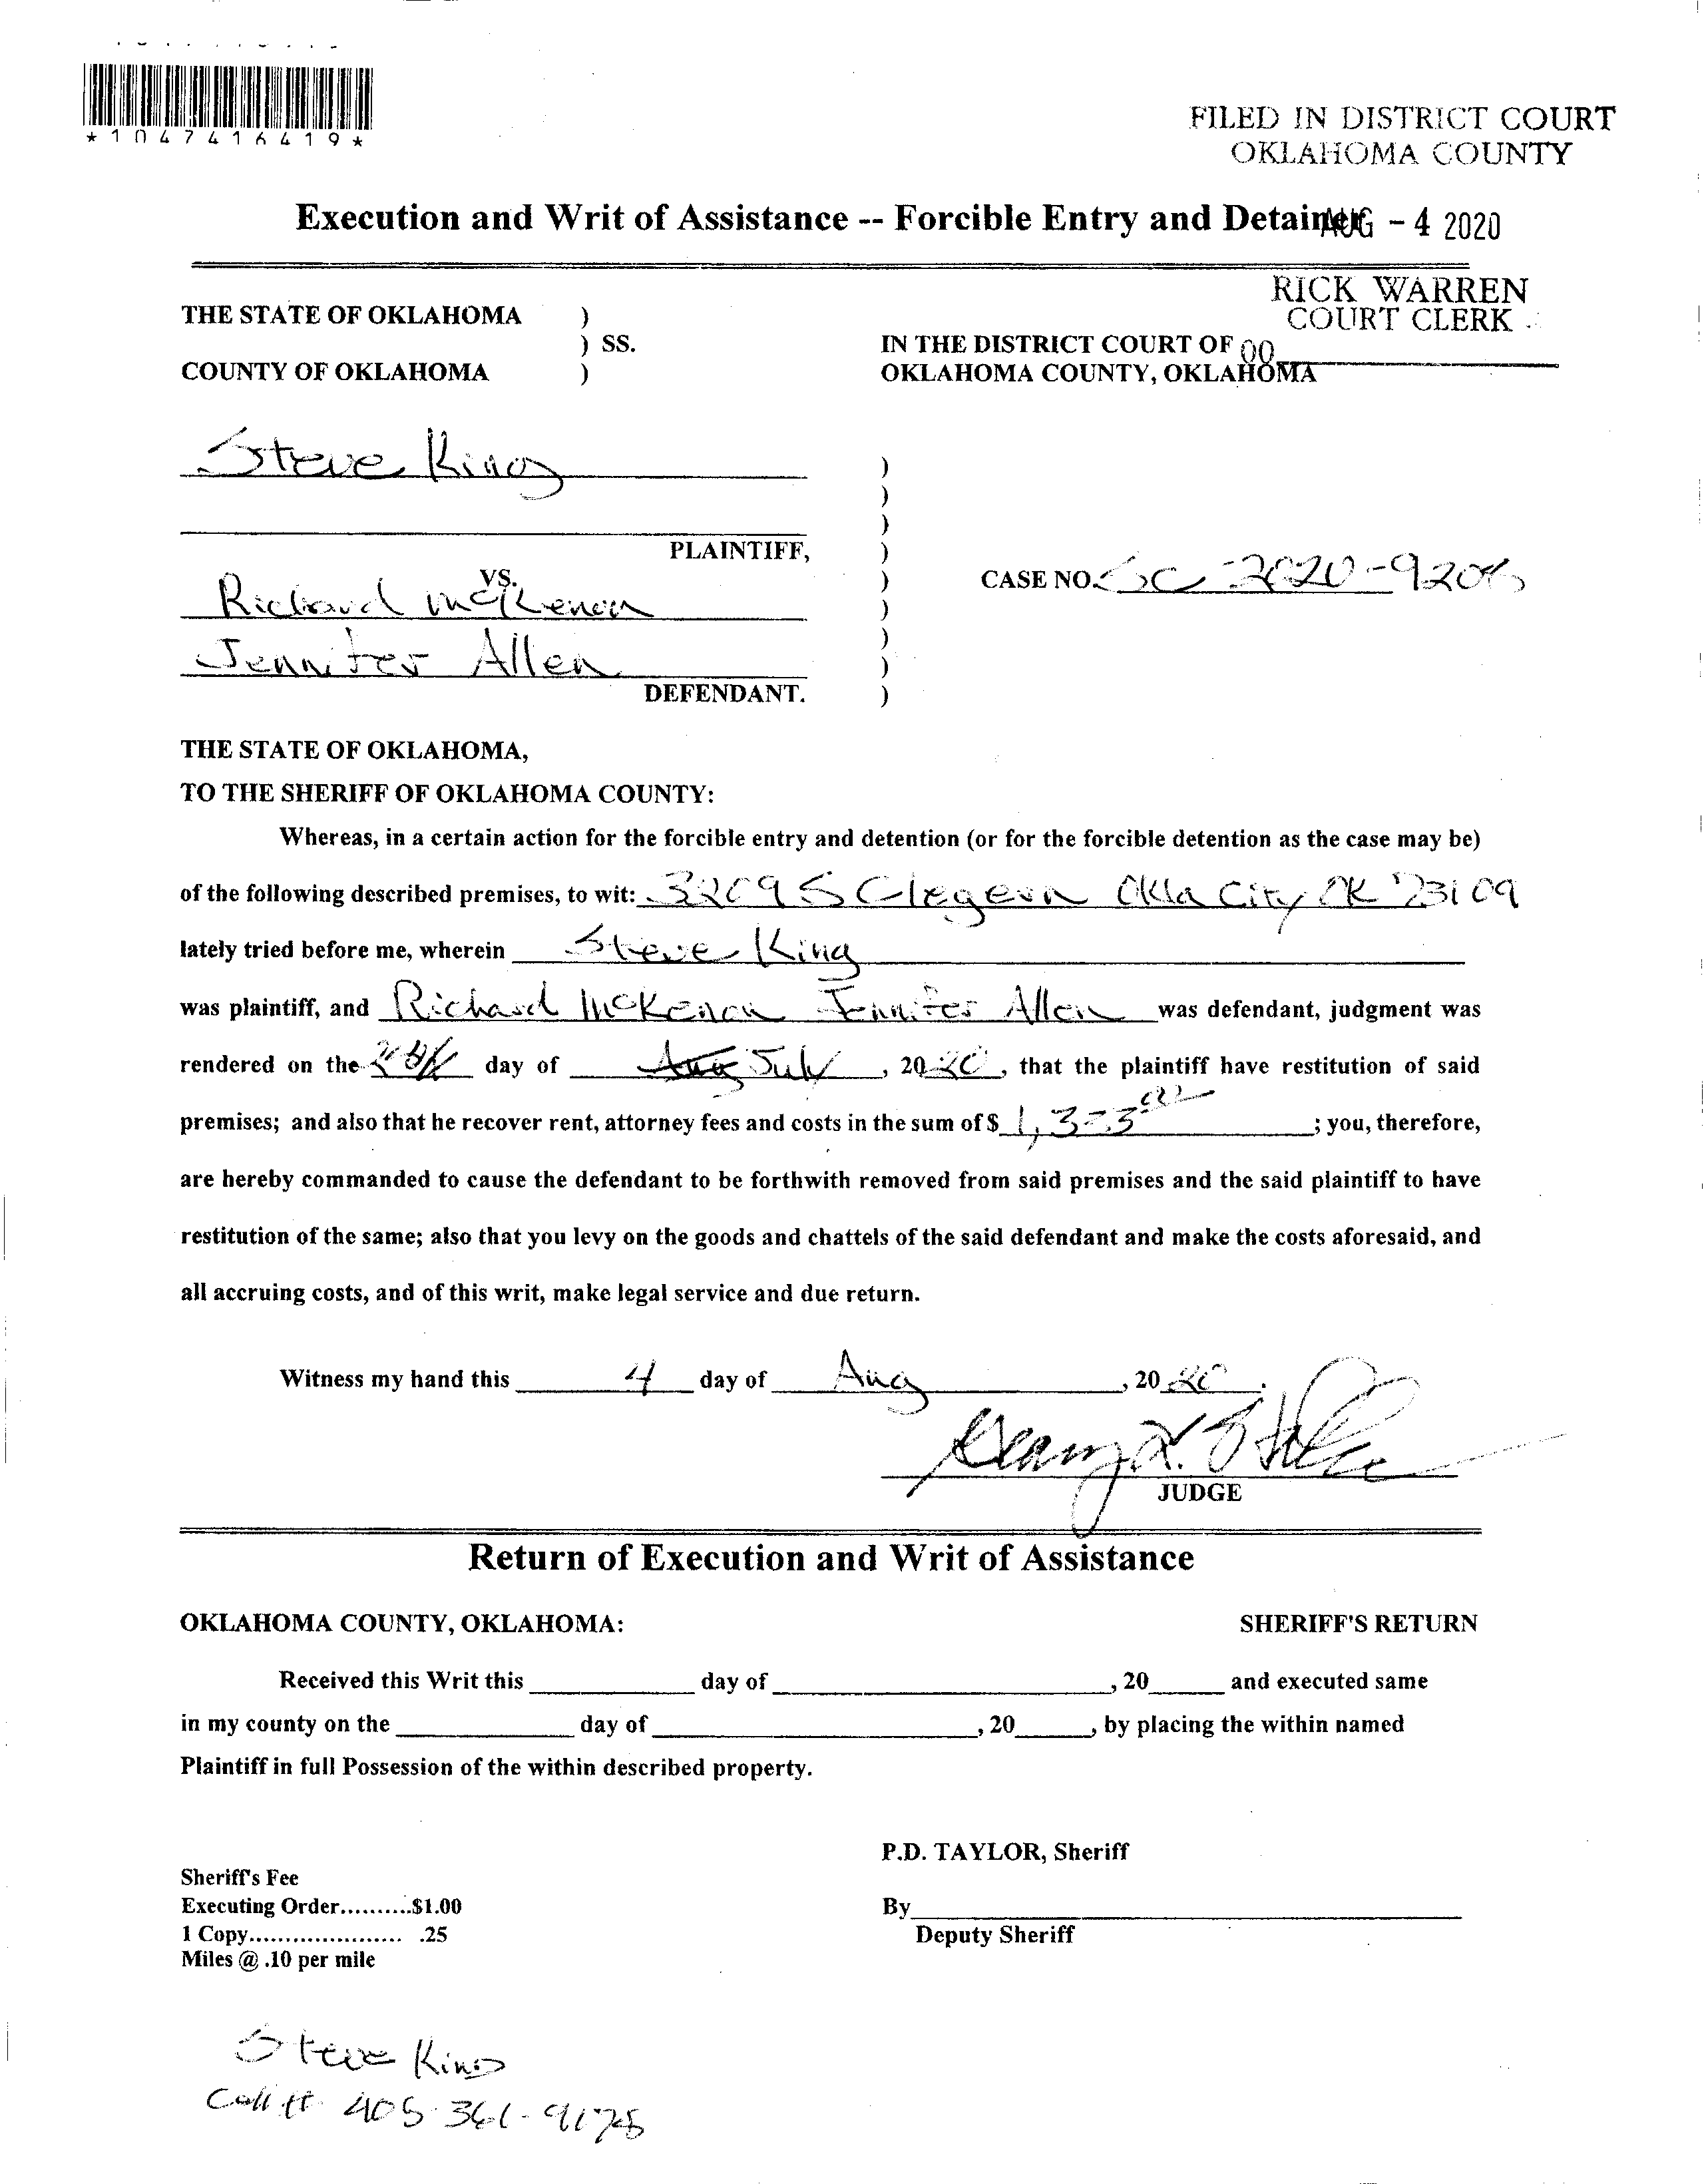 *1047416419*
FILED IN DISTRICT COURT
OKLAHOMA COUNTY
Execution and Writ of Assistance -- Forcible Entry and Detainer
AUG - 4 2020
RICK WARREN
COURT CLERK
THE STATE OF OKLAHOMA )
) SS.
COUNTY OF OKLAHOMA )
IN THE DISTRICT COURT OF
OKLAHOMA COUNTY, OKLAHOMA
Steve King
PLAINTIFF,
VS.
Richard McKenon
Jennifer Allen
DEFENDANT.
)
)
)
)
)
)
)
)
)
CASE NO. SC-2020-9206
THE STATE OF OKLAHOMA,
TO THE SHERIFF OF OKLAHOMA COUNTY:
Whereas, in a certain action for the forcible entry and detention (or for the forcible detention as the case may be)
of the following described premises, to wit: 3209 S Clegern Okla City OK 73109
lately tried before me, wherein Steve King
was plaintiff, and Richard McKenon Jennifer Allen was defendant, judgment was
rendered on the day of Aug July, 2020, that the plaintiff have restitution of said
premises; and also that he recover rent, attorney fees and costs in the sum of $ ; you, therefore,
are hereby commanded to cause the defendant to be forthwith removed from said premises and the said plaintiff to have
restitution of the same; also that you levy on the goods and chattels of the said defendant and make the costs aforesaid, and
all accruing costs, and of this writ, make legal service and due return.
Witness my hand this 4 day of Aug, 2020.
JUDGE
Return of Execution and Writ of Assistance
OKLAHOMA COUNTY, OKLAHOMA:
SHERIFF'S RETURN
Received this Writ this ____ day of ____, 20____ and executed same
in my county on the ____ day of ____, 20____, by placing the within named
Plaintiff in full Possession of the within described property.
P.D. TAYLOR, Sheriff
Sheriff's Fee
Executing Order..........$1.00
By____
1 Copy..................... .25
Deputy Sheriff
Miles @ .10 per mile
Steve King
Call # 405-361-9175